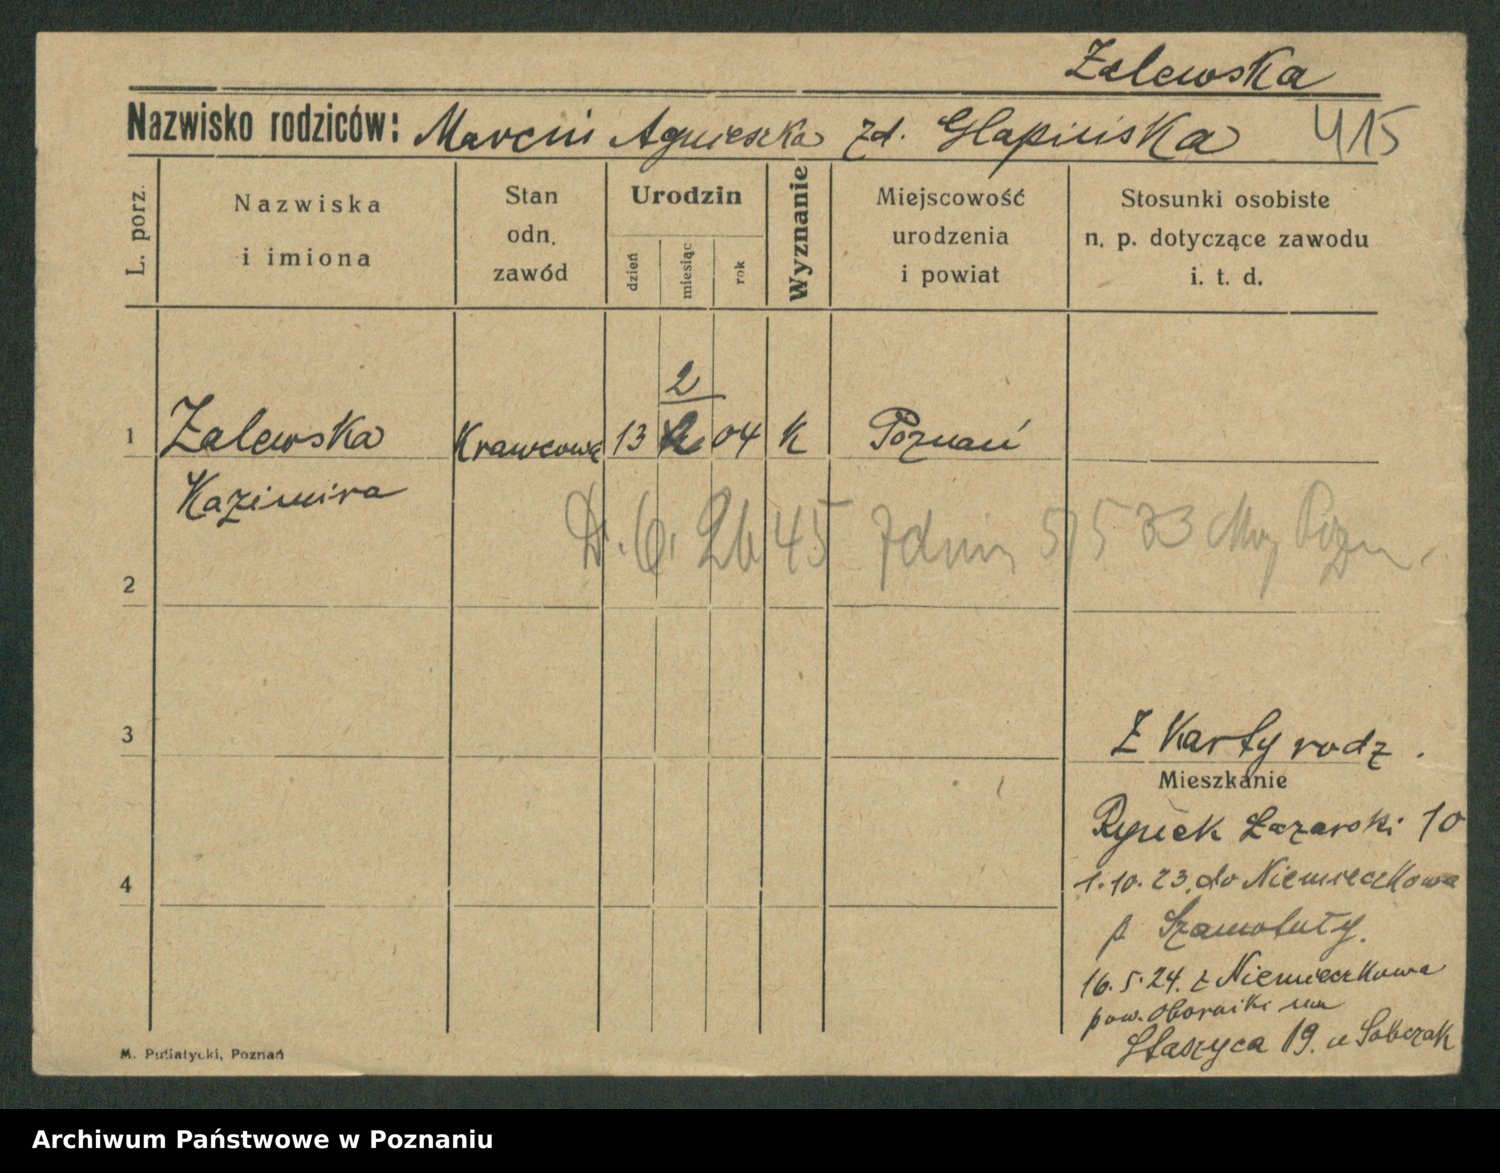 Zalewska
Nazwisko rodziców: Marcin Agnieszka zd. Glapińska 415
L. porz.
Nazwiska
i imiona
Stan
odn.
zawód
Urodzin
dzień
miesiąc
rok
Wyznanie
Miejscowość
urodzenia
i powiat
Stosunki osobiste
n. p. dotyczące zawodu
i. t. d.
2
1 Zalewska Krawcowa 13 04 K Poznań
Kazimira
26 45 5/5 33 Pozn.
2
3
Z Karty rodz.
Mieszkanie
Rynek Łazarski 10
4
1.10.23. do Niemieczkowa
p Szamotuły.
16.5.24. z Niemieczkowa
pow. Oborniki na
Staszyca 19. u Sobczak
M. Putiatycki, Poznań
Archiwum Państwowe w Poznaniu